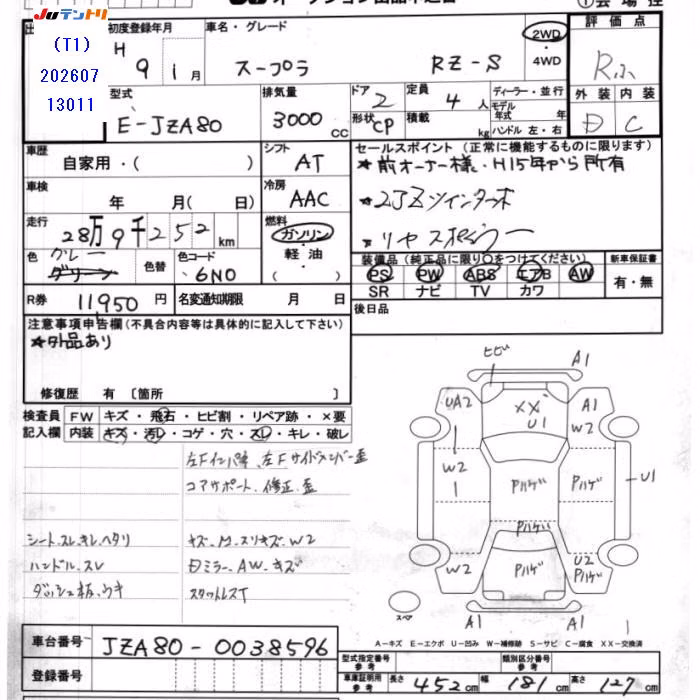 JUテントリ
(T1)
202607
13011
初度登録年月 車名・グレード 評価点
H 9年 1月 スープラ RZ-S 2WD・4WD
外装 内装
D C
型式 排気量 ドア 定員 ディーラー・並行
E-JZA80 3000cc 2 4人 モデル年式 年式
形状 CP 積載 kg ハンドル 左・右
車歴 シフト セールスポイント (正常に機能するものに限ります)
自家用・( ) AT ★前オーナー様、H15年から所有
車検 冷房 ★2JZツインターボ
年 月( 日) AAC
走行 燃料
28万9千252km ガソリン・軽油・( )
リヤスポイラー
色 グレー ダリーン 色替 色コード 6N0
装備品 (純正品に限り○をつけてください) 新車保証書
PS PW ABS エアB AW 有・無
SR ナビ TV カワ
R券 11,950円 名変通知期限 月 日 後日品
注意事項申告欄(不具合内容等は具体的に記入して下さい)
★外品あり
修復歴 有 〔箇所 〕
検査員 FW キズ・飛石・ヒビ割・リペア跡・×要
記入欄 内装 キズ・汚レ・コゲ・穴・スレ・キレ・破レ
左Fインパネ、左Fサイドメンバー歪
コアサポート、修正、歪
シート、スレ、キレ、ヘタリ
ハンドル、スレ ドミラー、AW、キズ
ダッシュ板、ウキ スタットレスT
ヒビ A1
UA2 XX U1 A1
W2 W2
1 Pハゲ Pハゲ U1
Pハゲ
W2 Pハゲ U2 Pハゲ
スペア A1 A1
A-キズ E-エクボ U-凹み W-補修跡 S-サビ C-腐食 XX-交換済
車台番号 JZA80-0038596
登録番号
型式指定番号 参考 類別区分番号 参考
車庫証明用 参考 長さ 452cm 幅 181cm 高さ 127cm